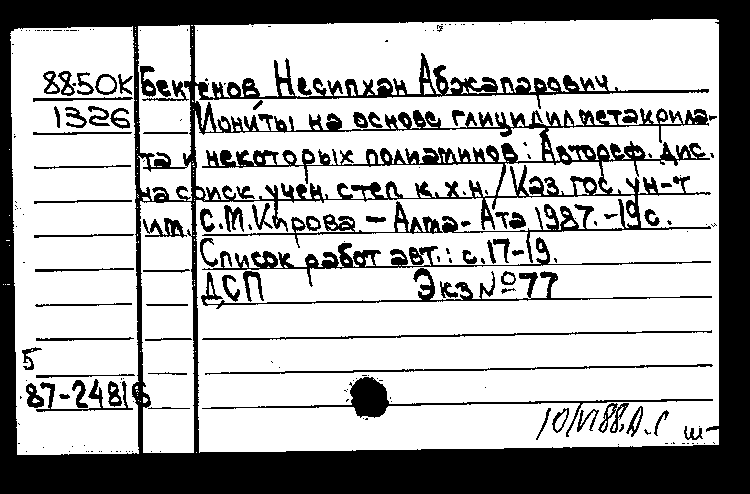 88-50К Бектенов Несипхан Абжапарович.
1326 Иониты на основе глицидилметакрила-
та и некоторых полиаминов: Автореф. дис.
на соиск. учен. степ. к.х.н. / Каз. гос. ун-т
им. С.М. Кирова. – Алма-Ата 1987. –19 с.
Список работ авт.: с. 17–19.
ДСП Экз № 77
5
87-24816
10/VI 88